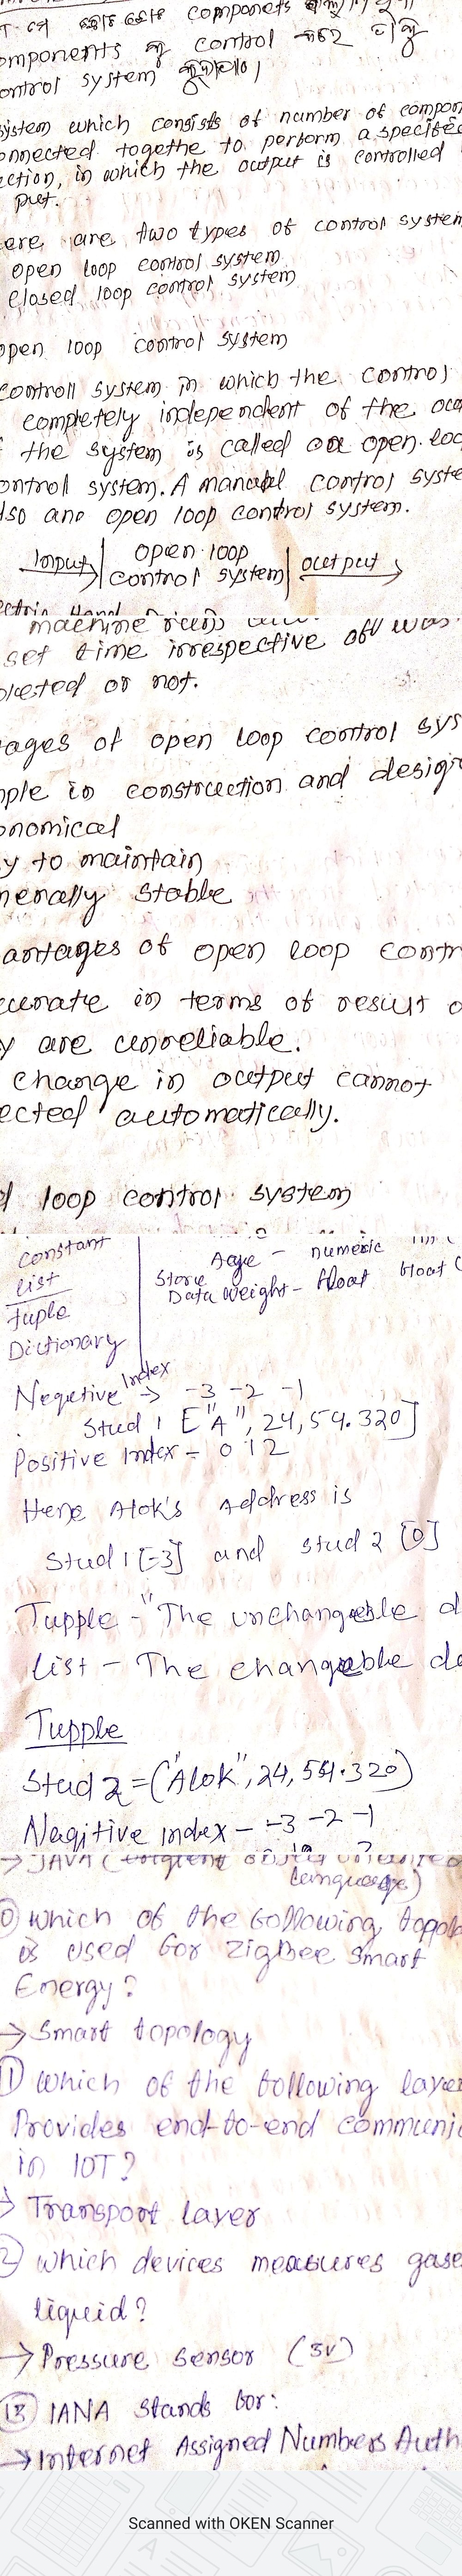 components
omponents of control
ontrol system
system which consists of number of compon
onnected togethe to perform a specified
ction, in which the output is controlled
put.
ere are two types of control system
open loop control system
closed loop control system
open loop control system
controll system in which the control
completely independent of the
the system is called open loo
ontrol system. A manual control syste
lso ano open loop control system.
Input open loop output
control system
ectric Hand
machine runs
set time irrespective off was
pleted or not.
ages of open loop control sys
mple in construction and design
onomical
y to maintain
nerally stable
antages of open loop contr
ccurate in terms of result o
y are unreliable.
change in output cannot
ected automatically.
d loop control system
constant
Age - numeric
list
Store
Data weight - float float (
Tuple
Dictionary
Negetive Index → -3 -2 -1
Stud 1 ["A", 24, 54.320]
Positive Index = 0 1 2
Here Alok's Address is
Stud 1 [-3] and stud 2 [0]
Tupple - "The unchangeble d
list - The changeble da
Tupple
Stud 2 = ("Alok", 24, 554.320)
Nagitive index - -3 -2 -1
→ JAVA (
language)
0 which of the following topolo
is used for ZigBee Smart
Energy?
→ Smart topology
11 which of the following layer
Provides end-to-end communic
in IOT?
→ Transport layer
2 which devices measures gase
liquid?
→ Pressure sensor (3V)
13 IANA stands for:
→ Internet Assigned Numbers Auth
Scanned with OKEN Scanner